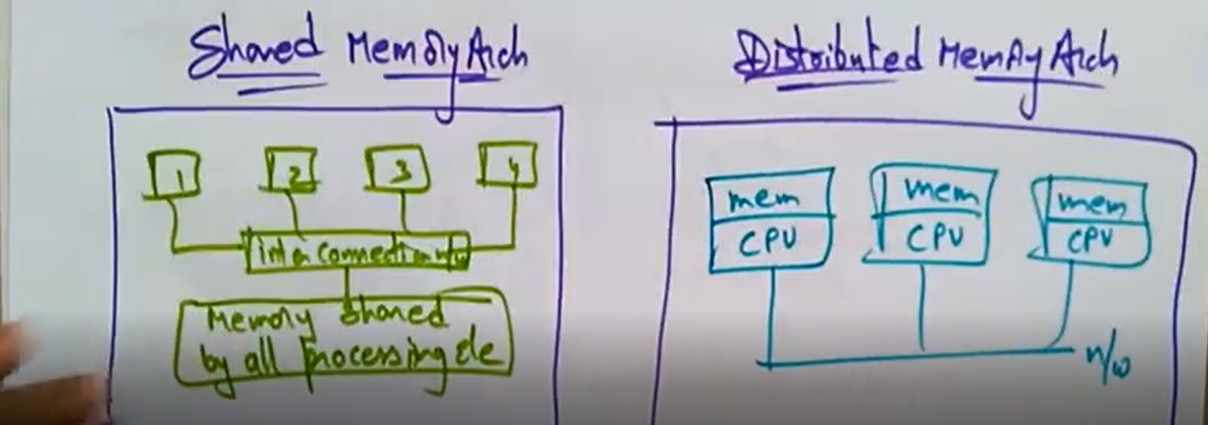 Shared Memory Arch
1 2 3 4
Inter connection n/w
Memory Shared
by all processing ele
Distributed Memory Arch
mem mem mem
CPU CPU CPU
n/w